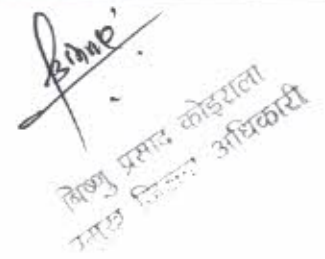 बिष्णु प्रसाद कोइराला
प्रमुख जिल्ला अधिकारी